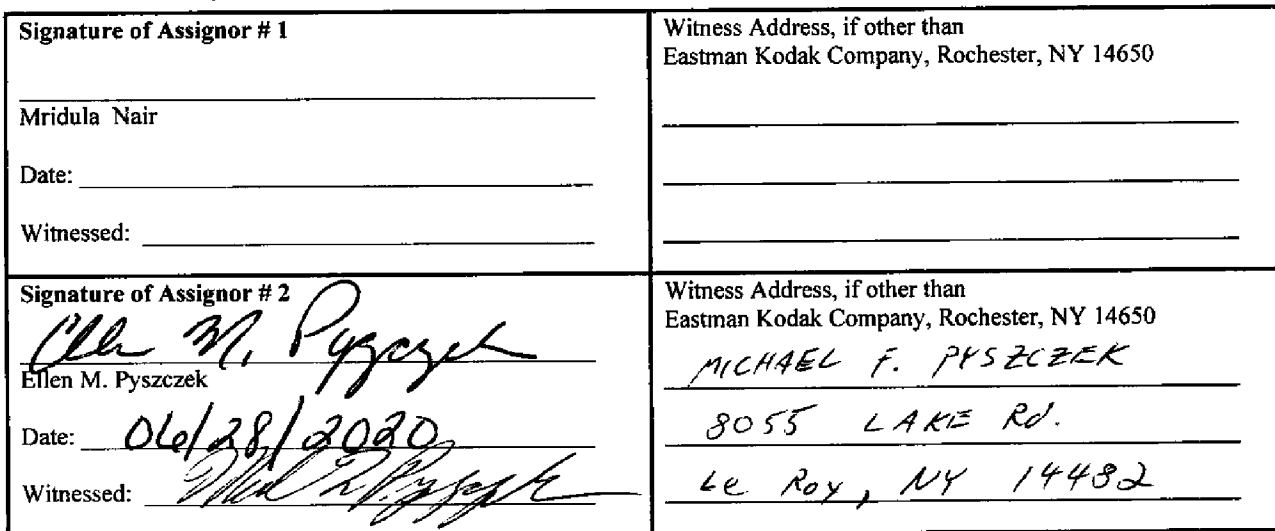 Signature of Assignor # 1
Mridula Nair
Date:
Witnessed:
Witness Address, if other than
Eastman Kodak Company, Rochester, NY 14650
Signature of Assignor # 2
Ellen M. Pyszczek
Ellen M. Pyszczek
Date: 06/28/2020
Witnessed:
Witness Address, if other than
Eastman Kodak Company, Rochester, NY 14650
MICHAEL F. PYSZCZEK
8055 LAKE Rd.
Le Roy, NY 14482